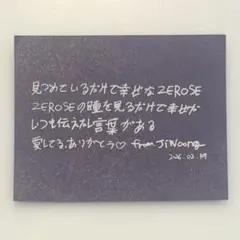 見つめているだけで幸せなZEROSE
ZEROSEの瞳を見るだけで幸せだ
いつも伝えたい言葉がある
愛してる、ありがとう♡ from JiWoong